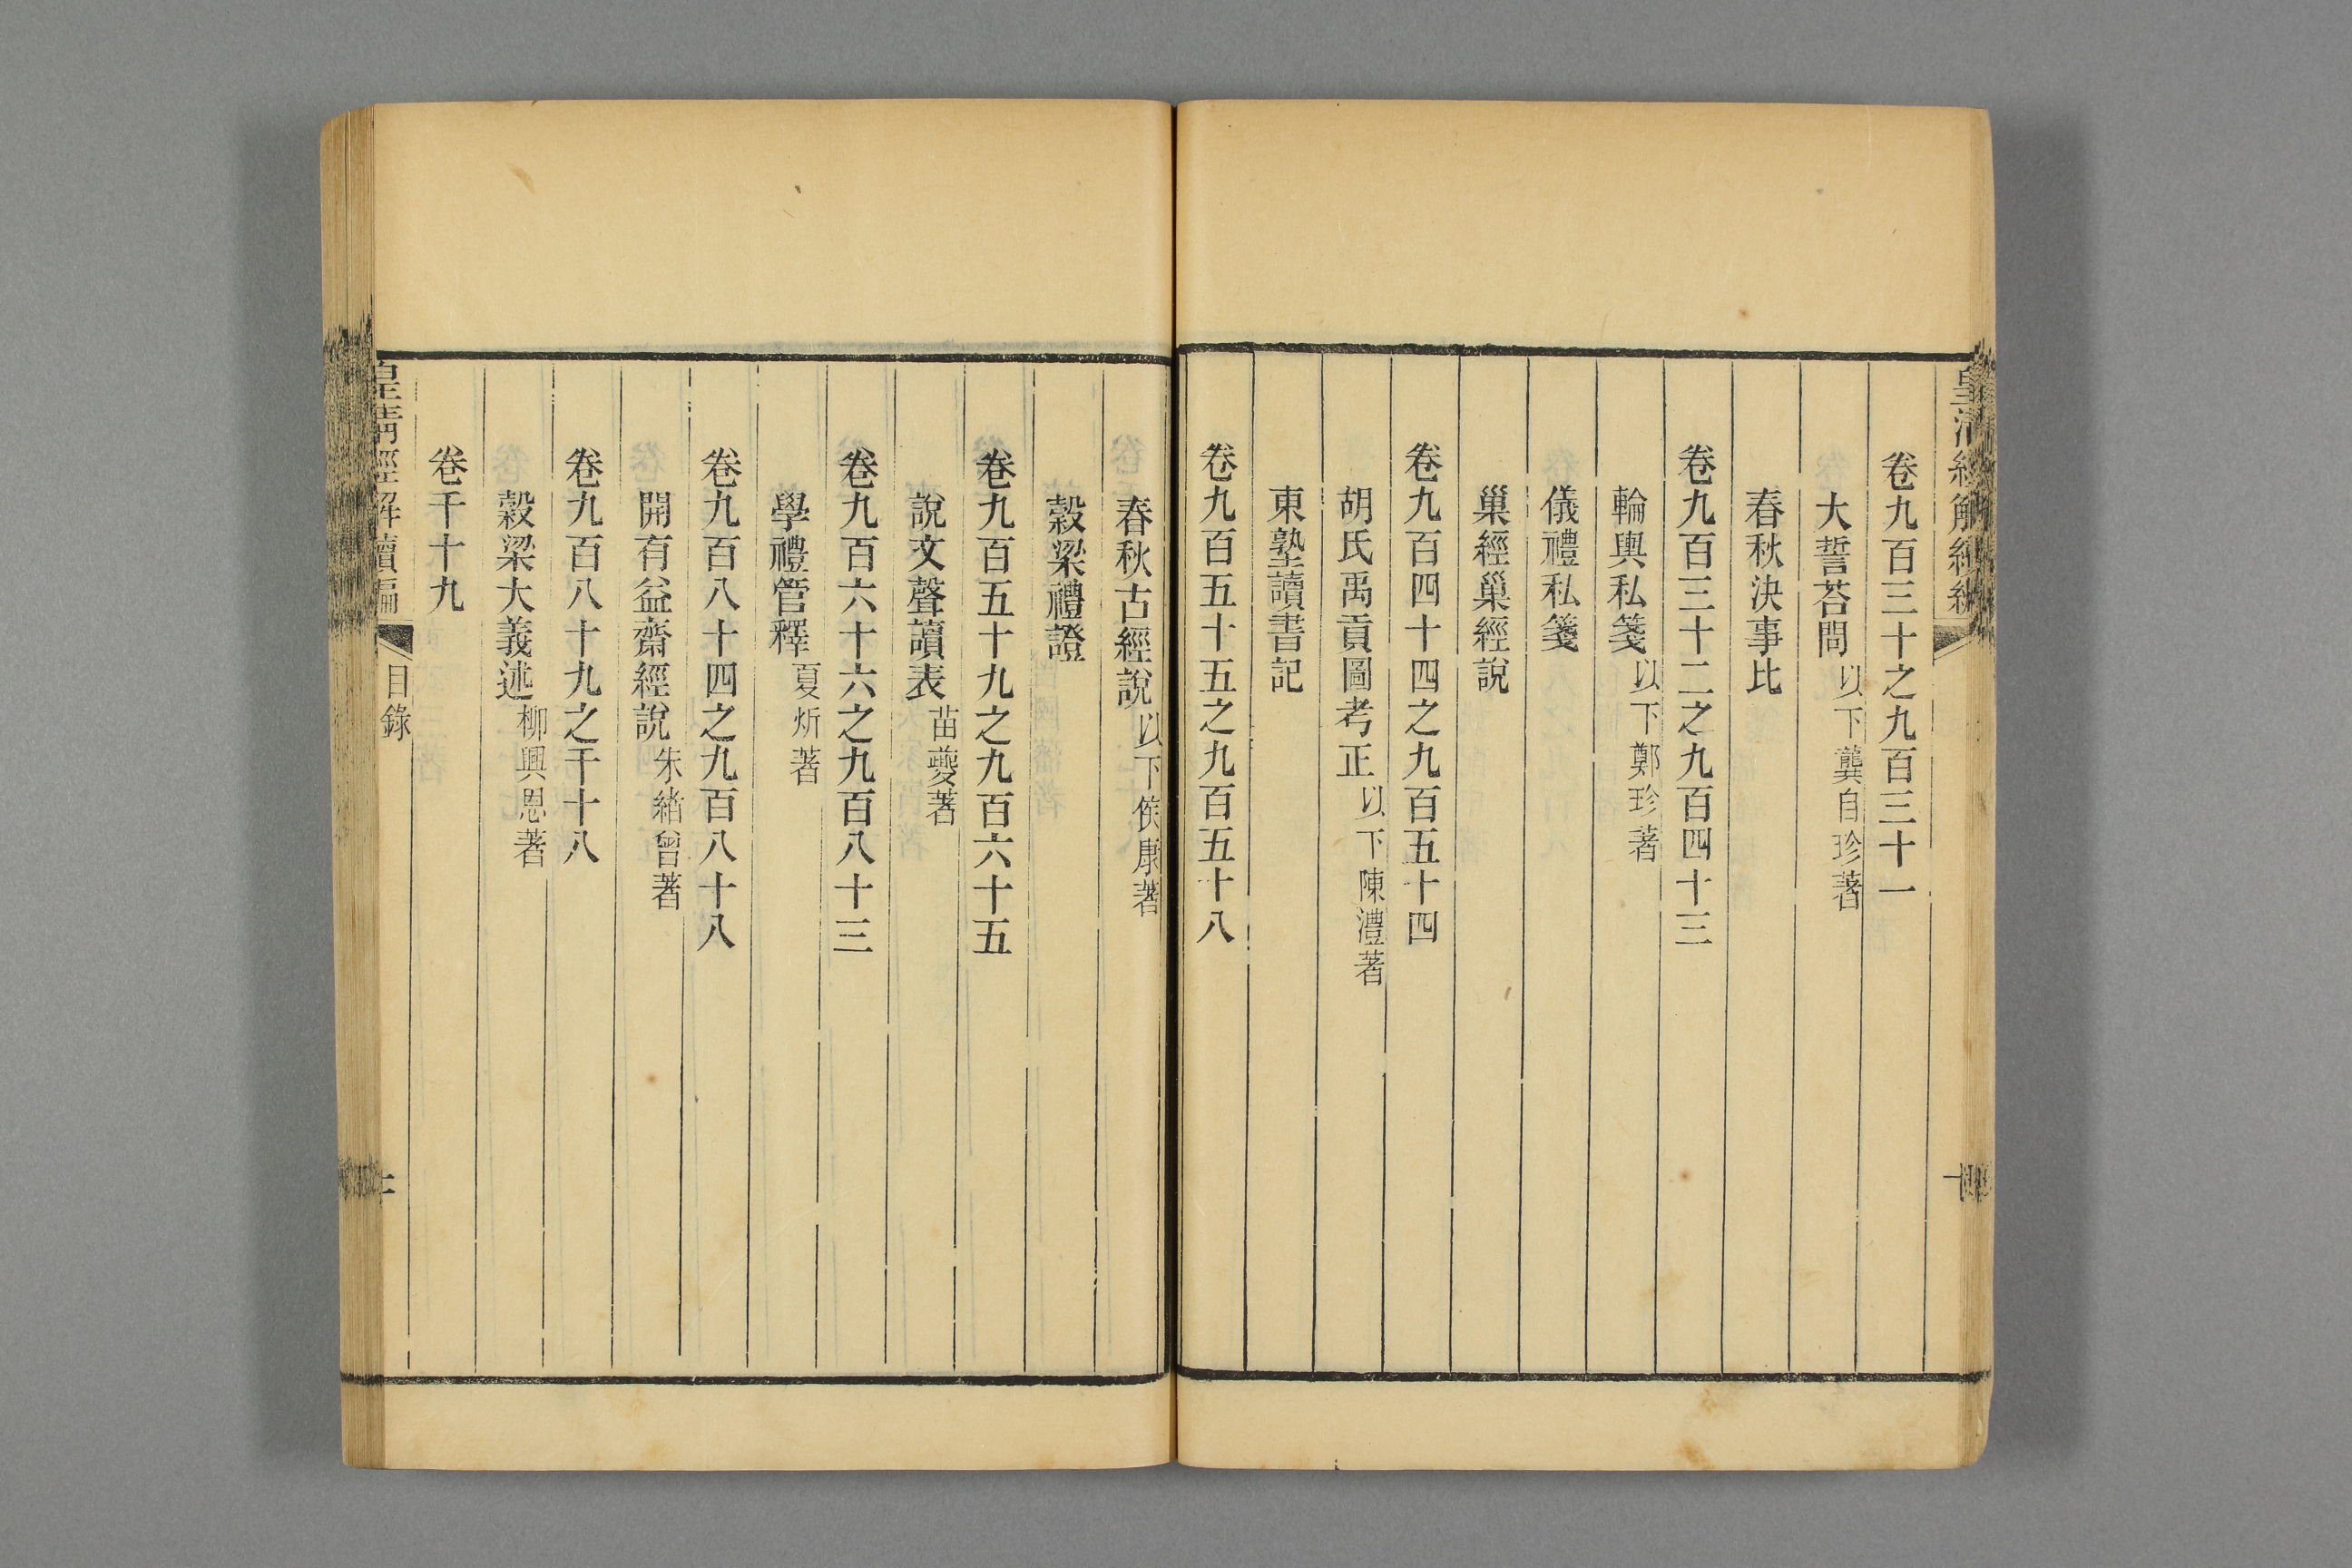 卷九百三十之九百三十一
大誓荅問以下龔自珍著
春秋決事比
卷九百三十二之九百四十三
輪輿私箋以下鄭珍著
儀禮私箋
巢經巢經說
卷九百四十四之九百五十四
胡氏禹貢圖考正以下陳澧著
東塾讀書記
卷九百五十五之九百五十八
春秋古經說以下侯康著
穀梁禮證
卷九百五十九之九百六十五
說文聲讀表苗夔著
卷九百六十六之九百八十三
學禮管釋夏炘著
卷九百八十四之九百八十八
開有益齋經說朱緒曾著
卷九百八十九之千十八
穀梁大義述柳興恩著
卷千十九
皇清經解續編 目錄